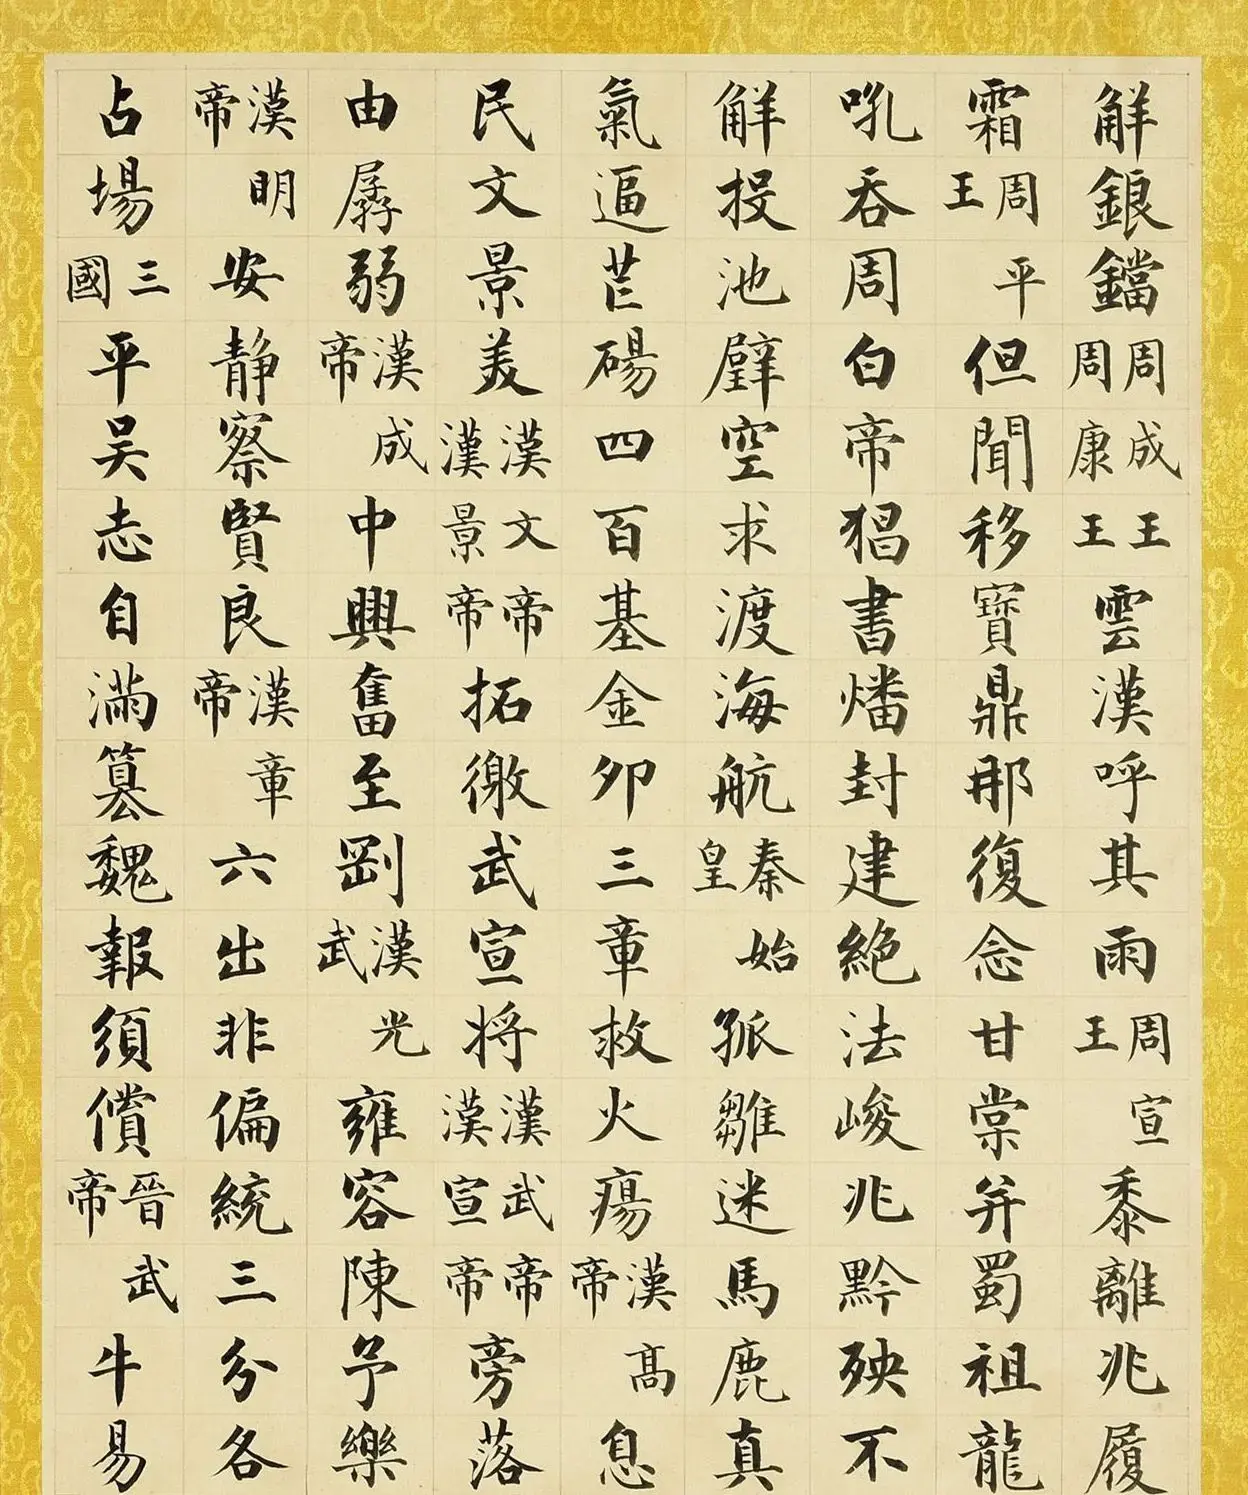 觧銀鐺周成王周康王雲漢呼其雨周宣王黍離兆履
霜周平王但聞移寶鼎那復念甘棠并蜀祖龍
吼吞周白帝猖書燔封建絕法峻兆黔殃不
觧投池璧空求渡海航秦始皇孤雛迷馬鹿真
氣逼芒碭四百基金卯三章救火瘍漢高帝息
民文景美漢文帝漢景帝拓徼武宣將漢武帝漢宣帝旁落
由孱弱漢成帝中興奮至剛漢光武雍容陳予樂
漢明帝安静察賢良漢章帝六出非偏統三分各
占場三國平吴志自滿篡魏報須償晉武帝牛易